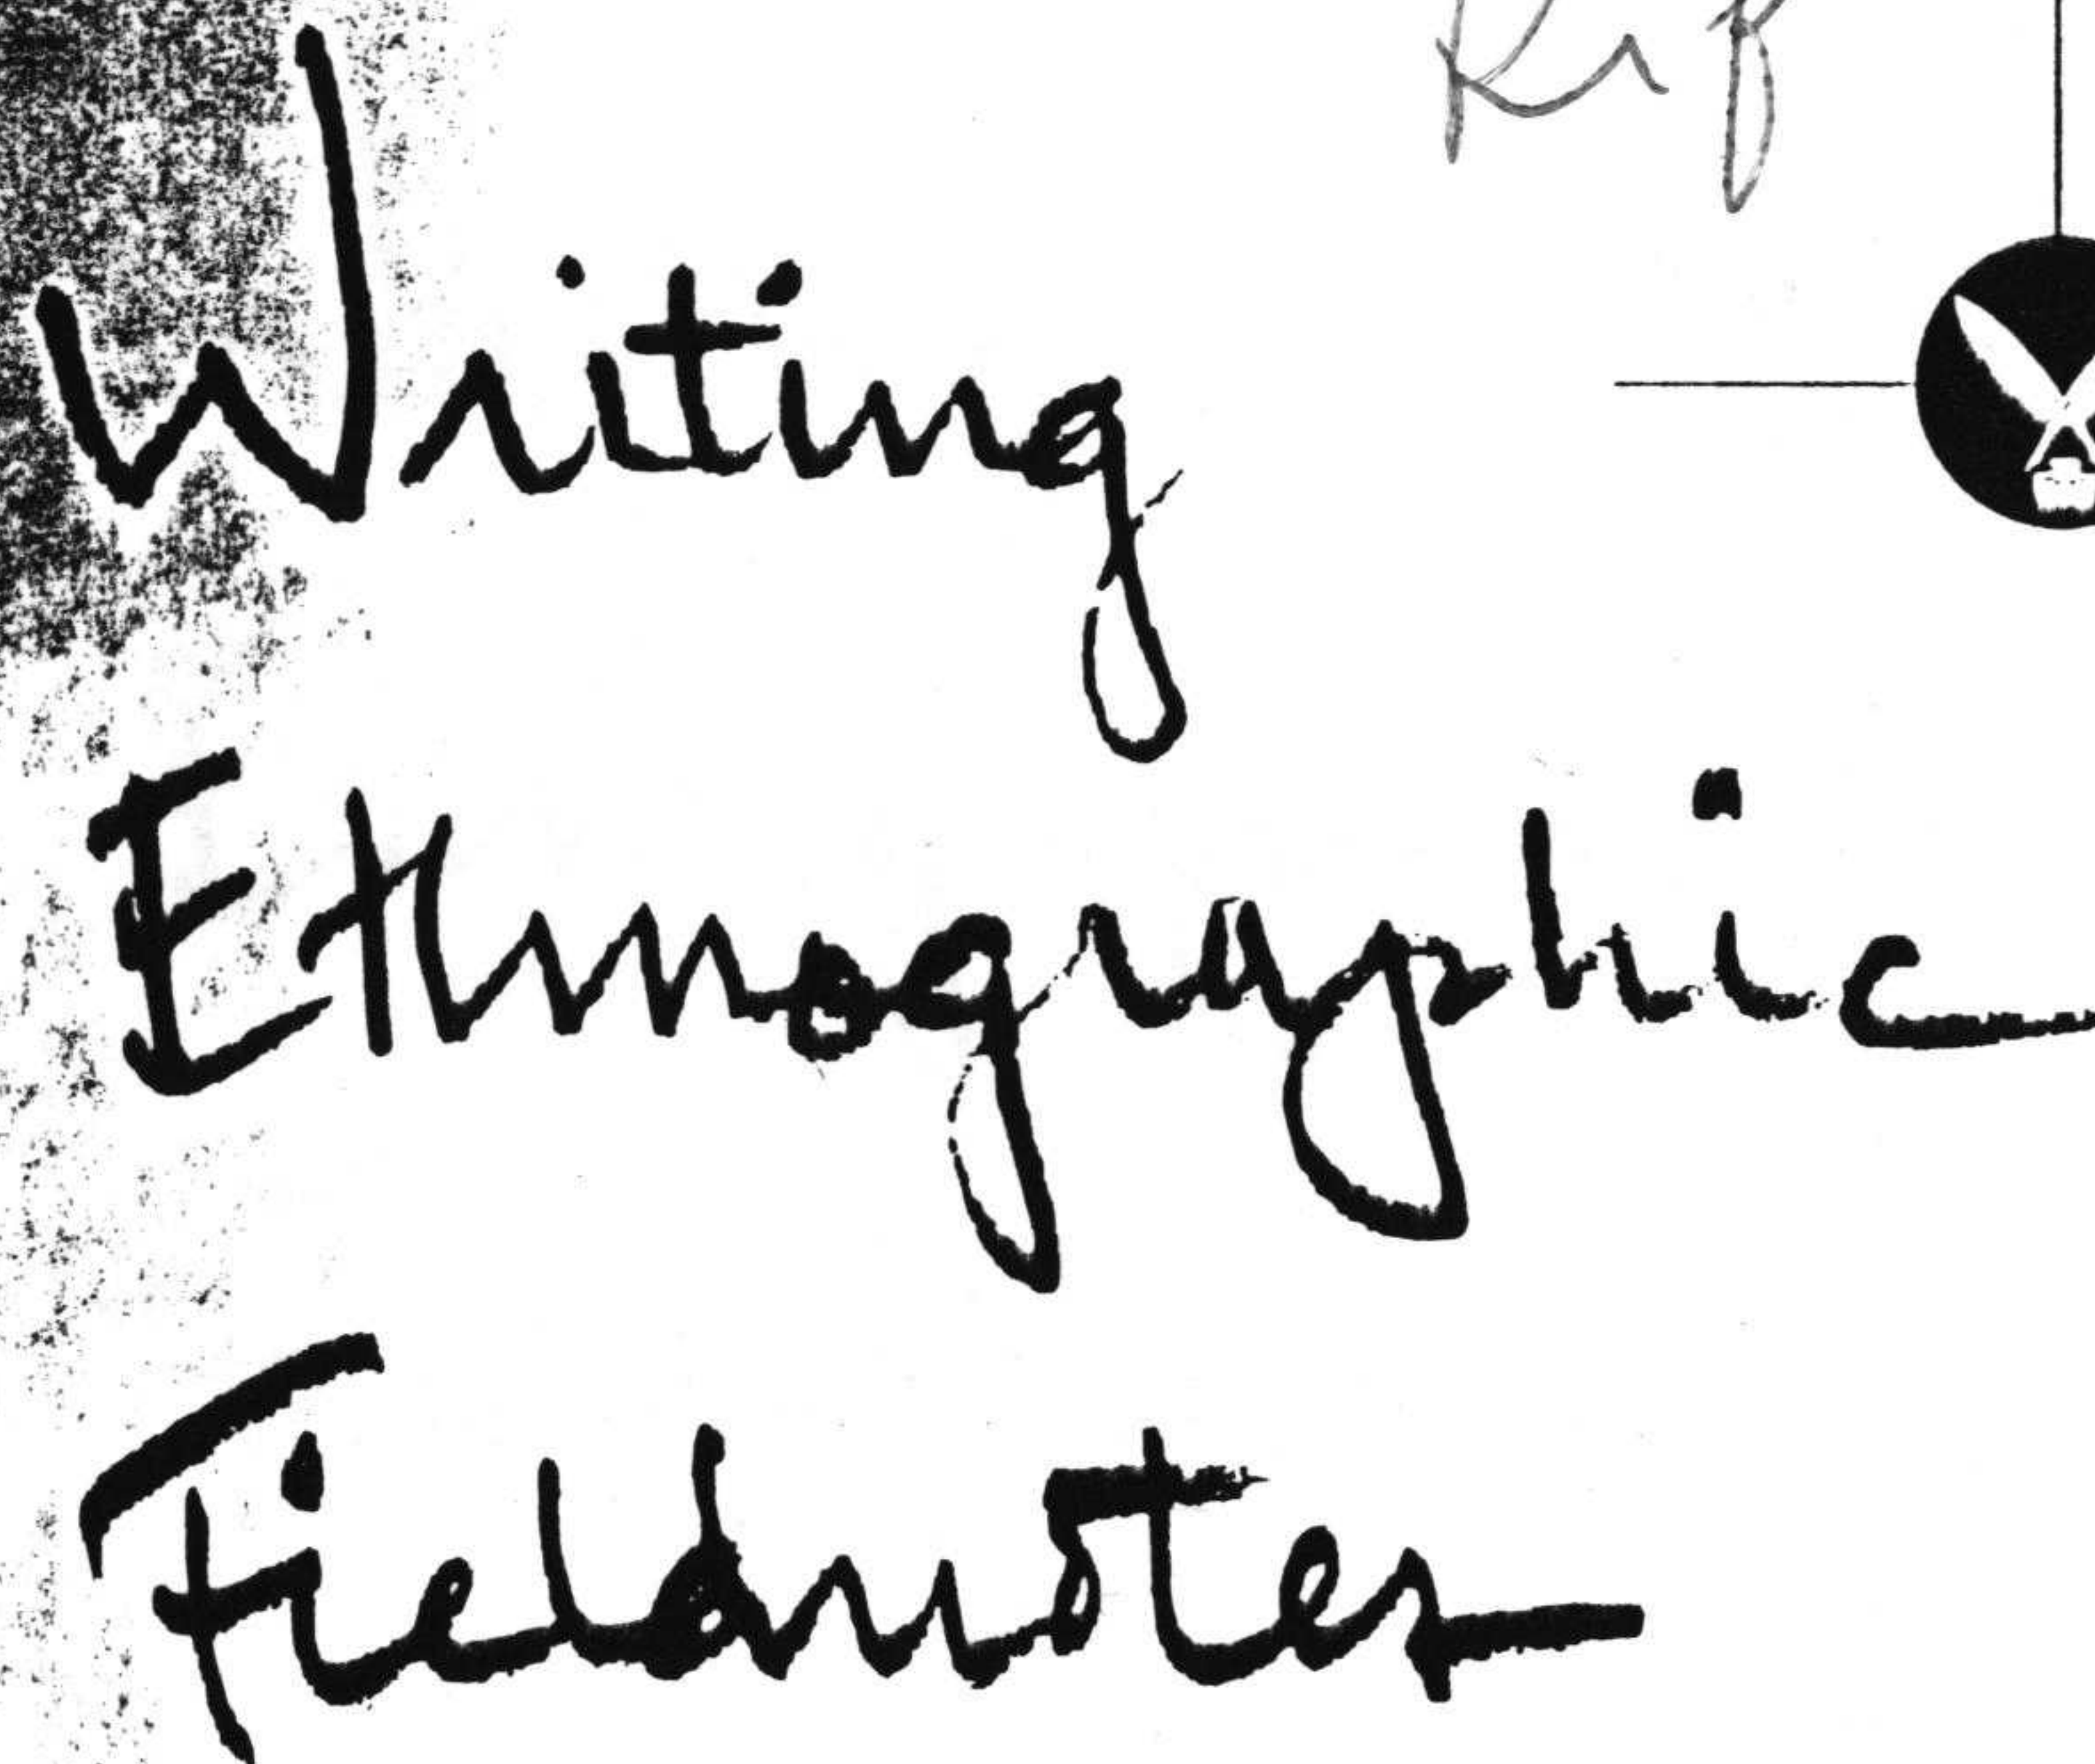 Writing
Ethnographic
Fieldnotes